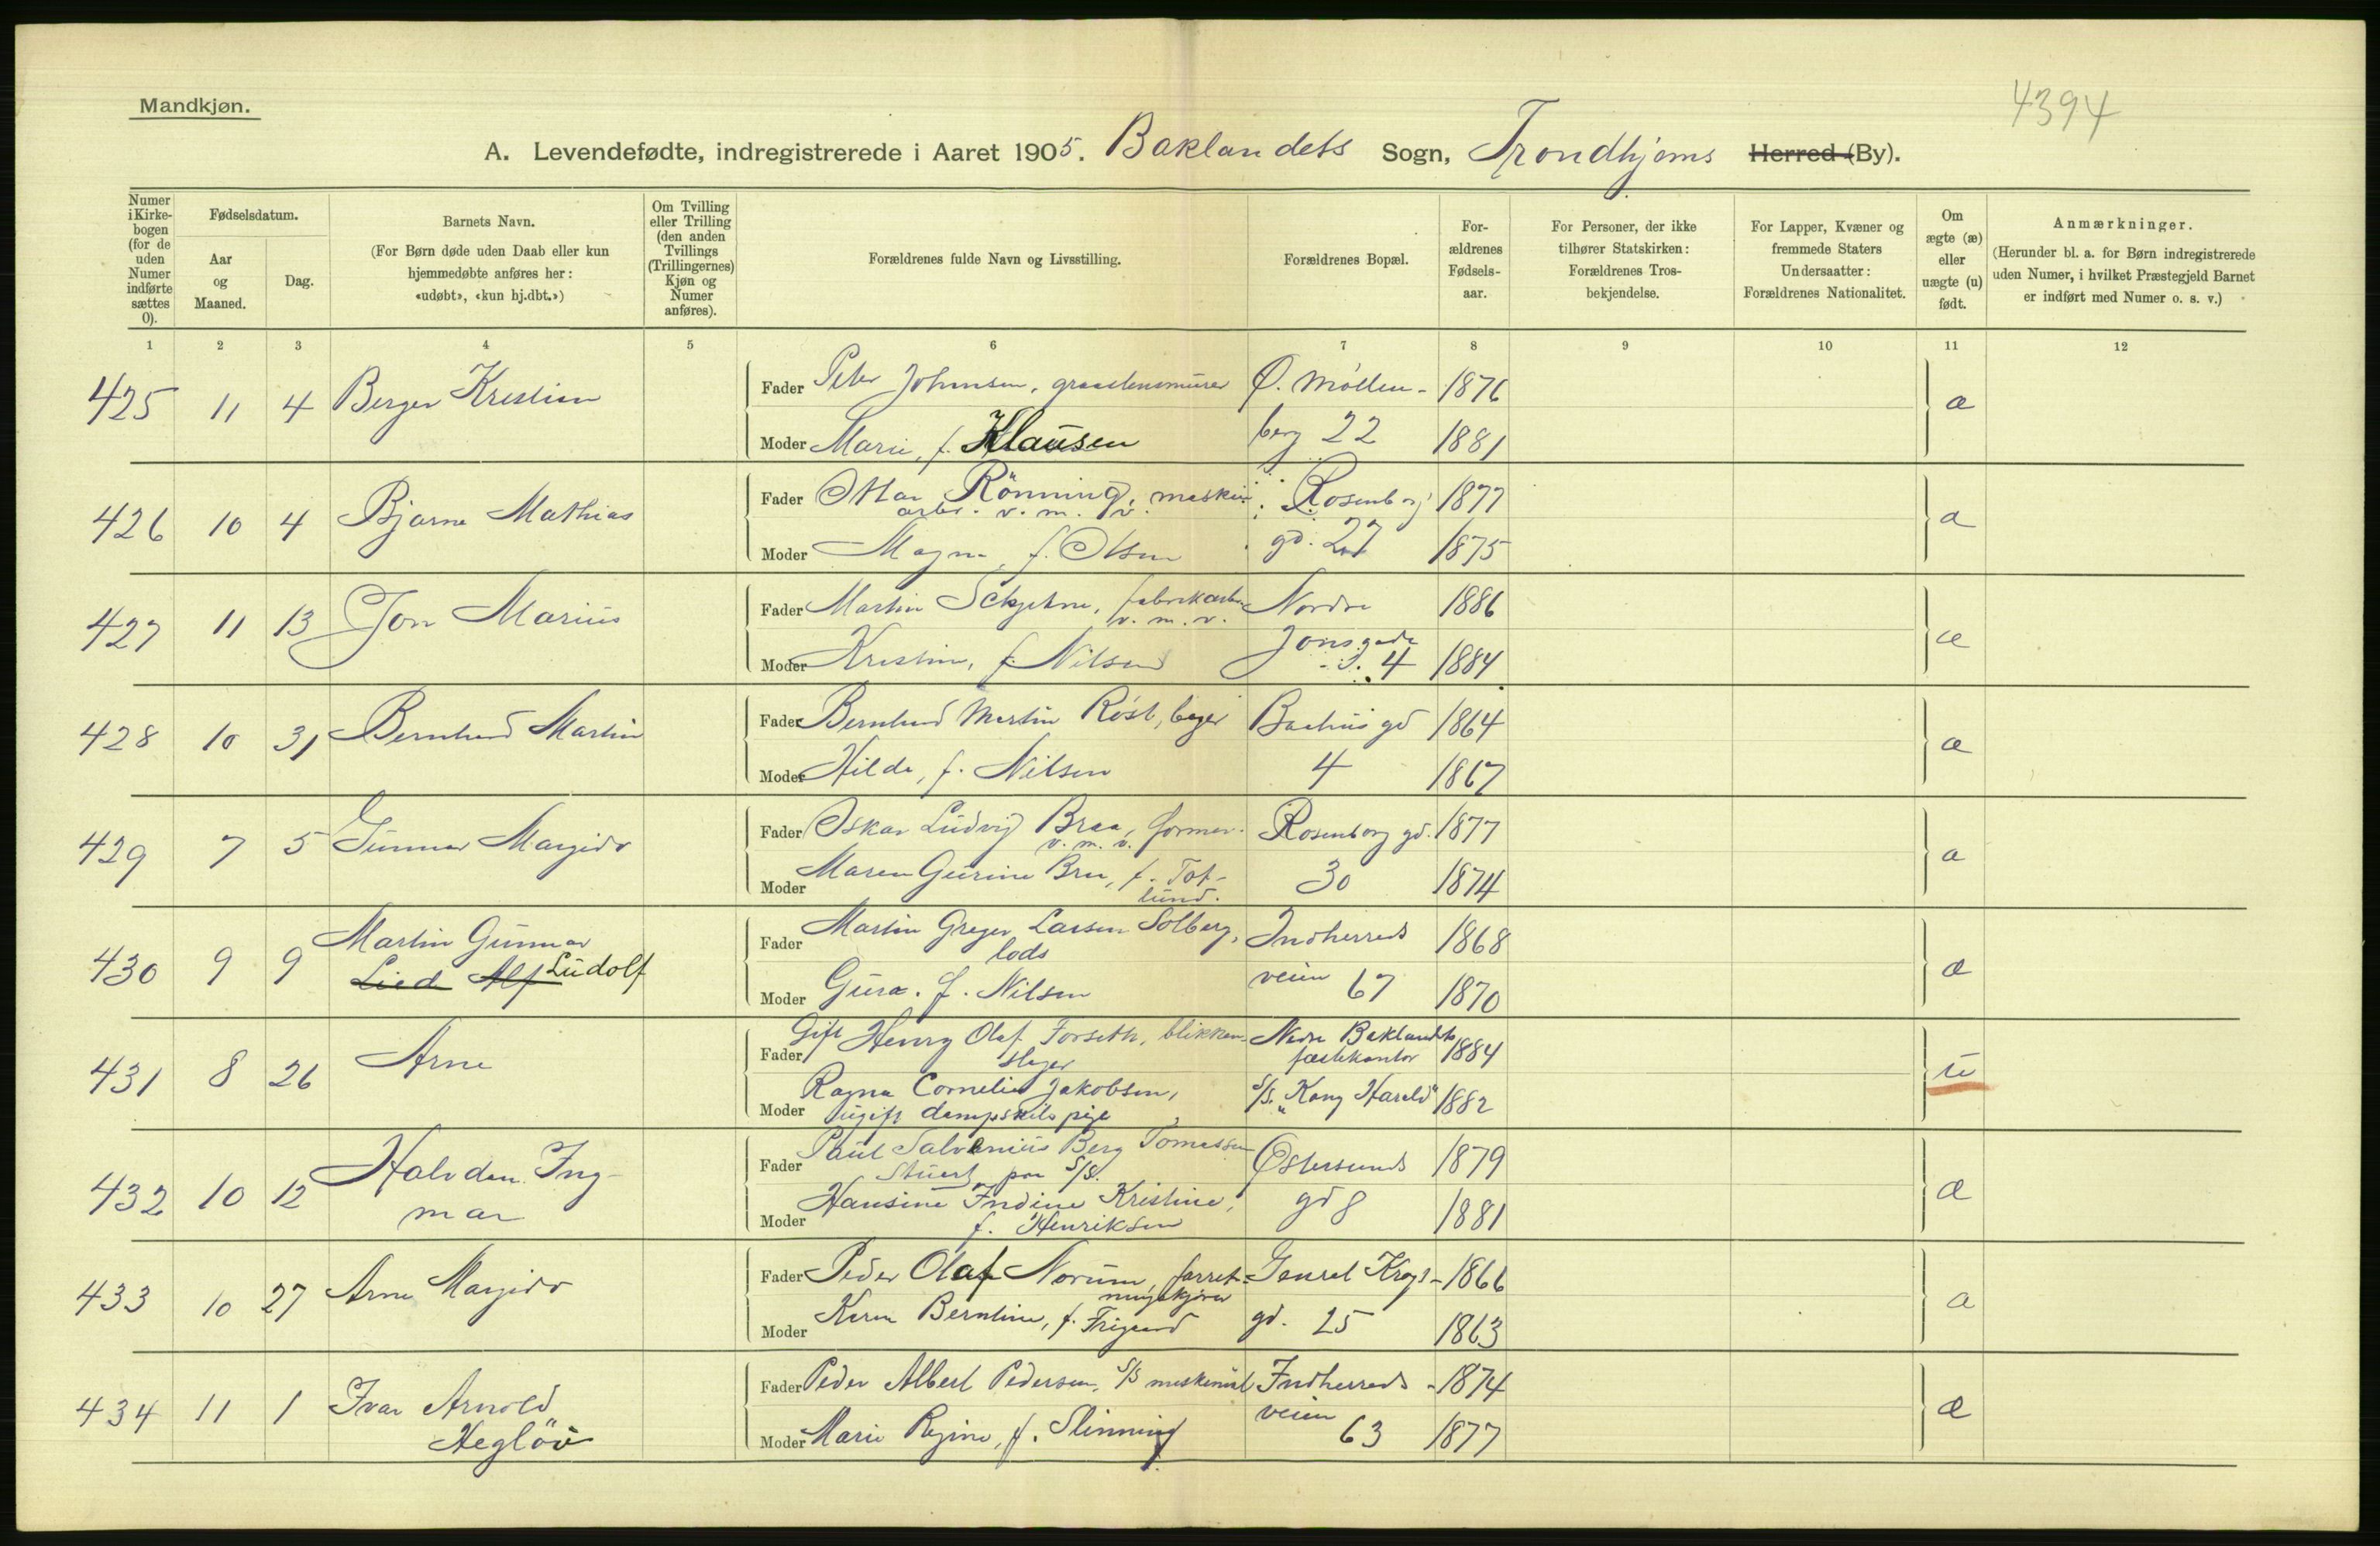 Mandkjøn.
4394
A. Levendefødte, indregistrerede i Aaret 1905. Baklandets Sogn, Trondhjems Herred (By).
Numer i Kirkebogen (for de uden Numer indførte sættes 0).
Fødselsdatum.
Aar og Maaned.
Dag.
Barnets Navn.
(For Børn døde uden Daab eller kun hjemmedøbte anføres her: «udøbt», «kun hj.dbt.»)
Om Tvilling eller Trilling (den anden Tvillings (Trillingernes) Kjøn og Numer anføres).
Forældrenes fulde Navn og Livsstilling.
Forældrenes Bopæl.
For-ældrenes Fødsels-aar.
For Personer, der ikke tilhører Statskirken: Forældrenes Tros-bekjendelse.
For Lapper, Kvæner og fremmede Staters Undersaatter: Forældrenes Nationalitet.
Om ægte (æ) eller uægte (u) født.
Anmærkninger.
(Herunder bl. a. for Børn indregistrerede uden Numer, i hvilket Præstegjeld Barnet er indført med Numer o. s. v.)
1 2 3 4 5 6 7 8 9 10 11 12
425 11 4 Berger Kristian Fader Peter Johnsen, graastensmurer Ø. Møllen- 1876 æ
Moder Marie, f. Klausen berg 22 1881
426 10 4 Bjarne Mathias Fader Ottar Rönning, maskin Rosenborg 1877 æ
arb. v. m. v.
Moder Magna, f. Olsen gd. 27 1875
427 11 13 Jon Marius Fader Martin Schjetne, fabrikarb. Nordre 1886 æ
v. m. v.
Moder Kristine, f. Nilsen Jonsgade 4 1884
428 10 31 Bernhard Martin Fader Bernhard Martin Röst, bager Bachus gd 1864 æ
Moder Hilda, f. Nilsen 4 1867
429 7 5 Gunnar Margido Fader Oskar Ludvig Braa, former Rosenborg gd. 1877 æ
v. m. v.
Moder Maren Gurine Bru, f. Tot- 30 1874
lund.
430 9 9 Martin Gunnar Fader Martin Greger Larsen Solberg, Indherreds 1868 æ
Alf Ludolf lods
Moder Gura. f. Nilsen veien 67 1870
431 8 26 Arne Fader Gift Henry Olaf Forseth, blikken- Nedre Baklandets 1884 u
slager fæstekontor
Moder Ragna Cornelia Jakobsen, S/S. "Kong Harald" 1882
ugift dampskibspige
432 10 12 Halvdan Ing- Fader Paul Salvenius Berg Tomassen Østersunds 1879 æ
mar Stuert paa S/S.
Moder Hansine Indine Kristine, gd 8 1881
f. Henriksen
433 10 27 Arne Margido Fader Peder Olaf Norum, forret- Genral Krogs- 1866 æ
ningskjører
Moder Karen Berntine, f. Frigaard gd. 25 1863
434 11 1 Ivar Arnold Fader Peder Albert Pedersen, S/S maskinist Indherreds- 1874 æ
Moder Marie Regine, f. Slinning veien 63 1877